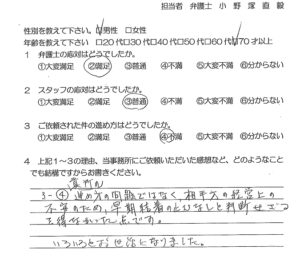 担当者 弁護士 小野塚直毅
性別を教えて下さい。☑男性 □女性
年齢を教えて下さい。□20代□30代□40代□50代□60代☑70才以上
1 弁護士の応対はどうでしたか。
①大変満足 ②満足 ③普通 ④不満 ⑤大変不満 ⑥分からない
2 スタッフの応対はどうでしたか。
①大変満足 ②満足 ③普通 ④不満 ⑤大変不満 ⑥分からない
3 ご依頼された件の進め方はどうでしたか。
①大変満足 ②満足 ③普通 ④不満 ⑤大変不満 ⑥分からない
4 上記1~3の理由、当事務所にご依頼いただいた感想など、どのようなこと
でも結構ですからお書きください。
3-④ 進め方の問題ではなく、相手方の経営上の
不安のため、早期結着の止むなしと判断せざる
を得なかった点です。
いろいろとお世話になりました。